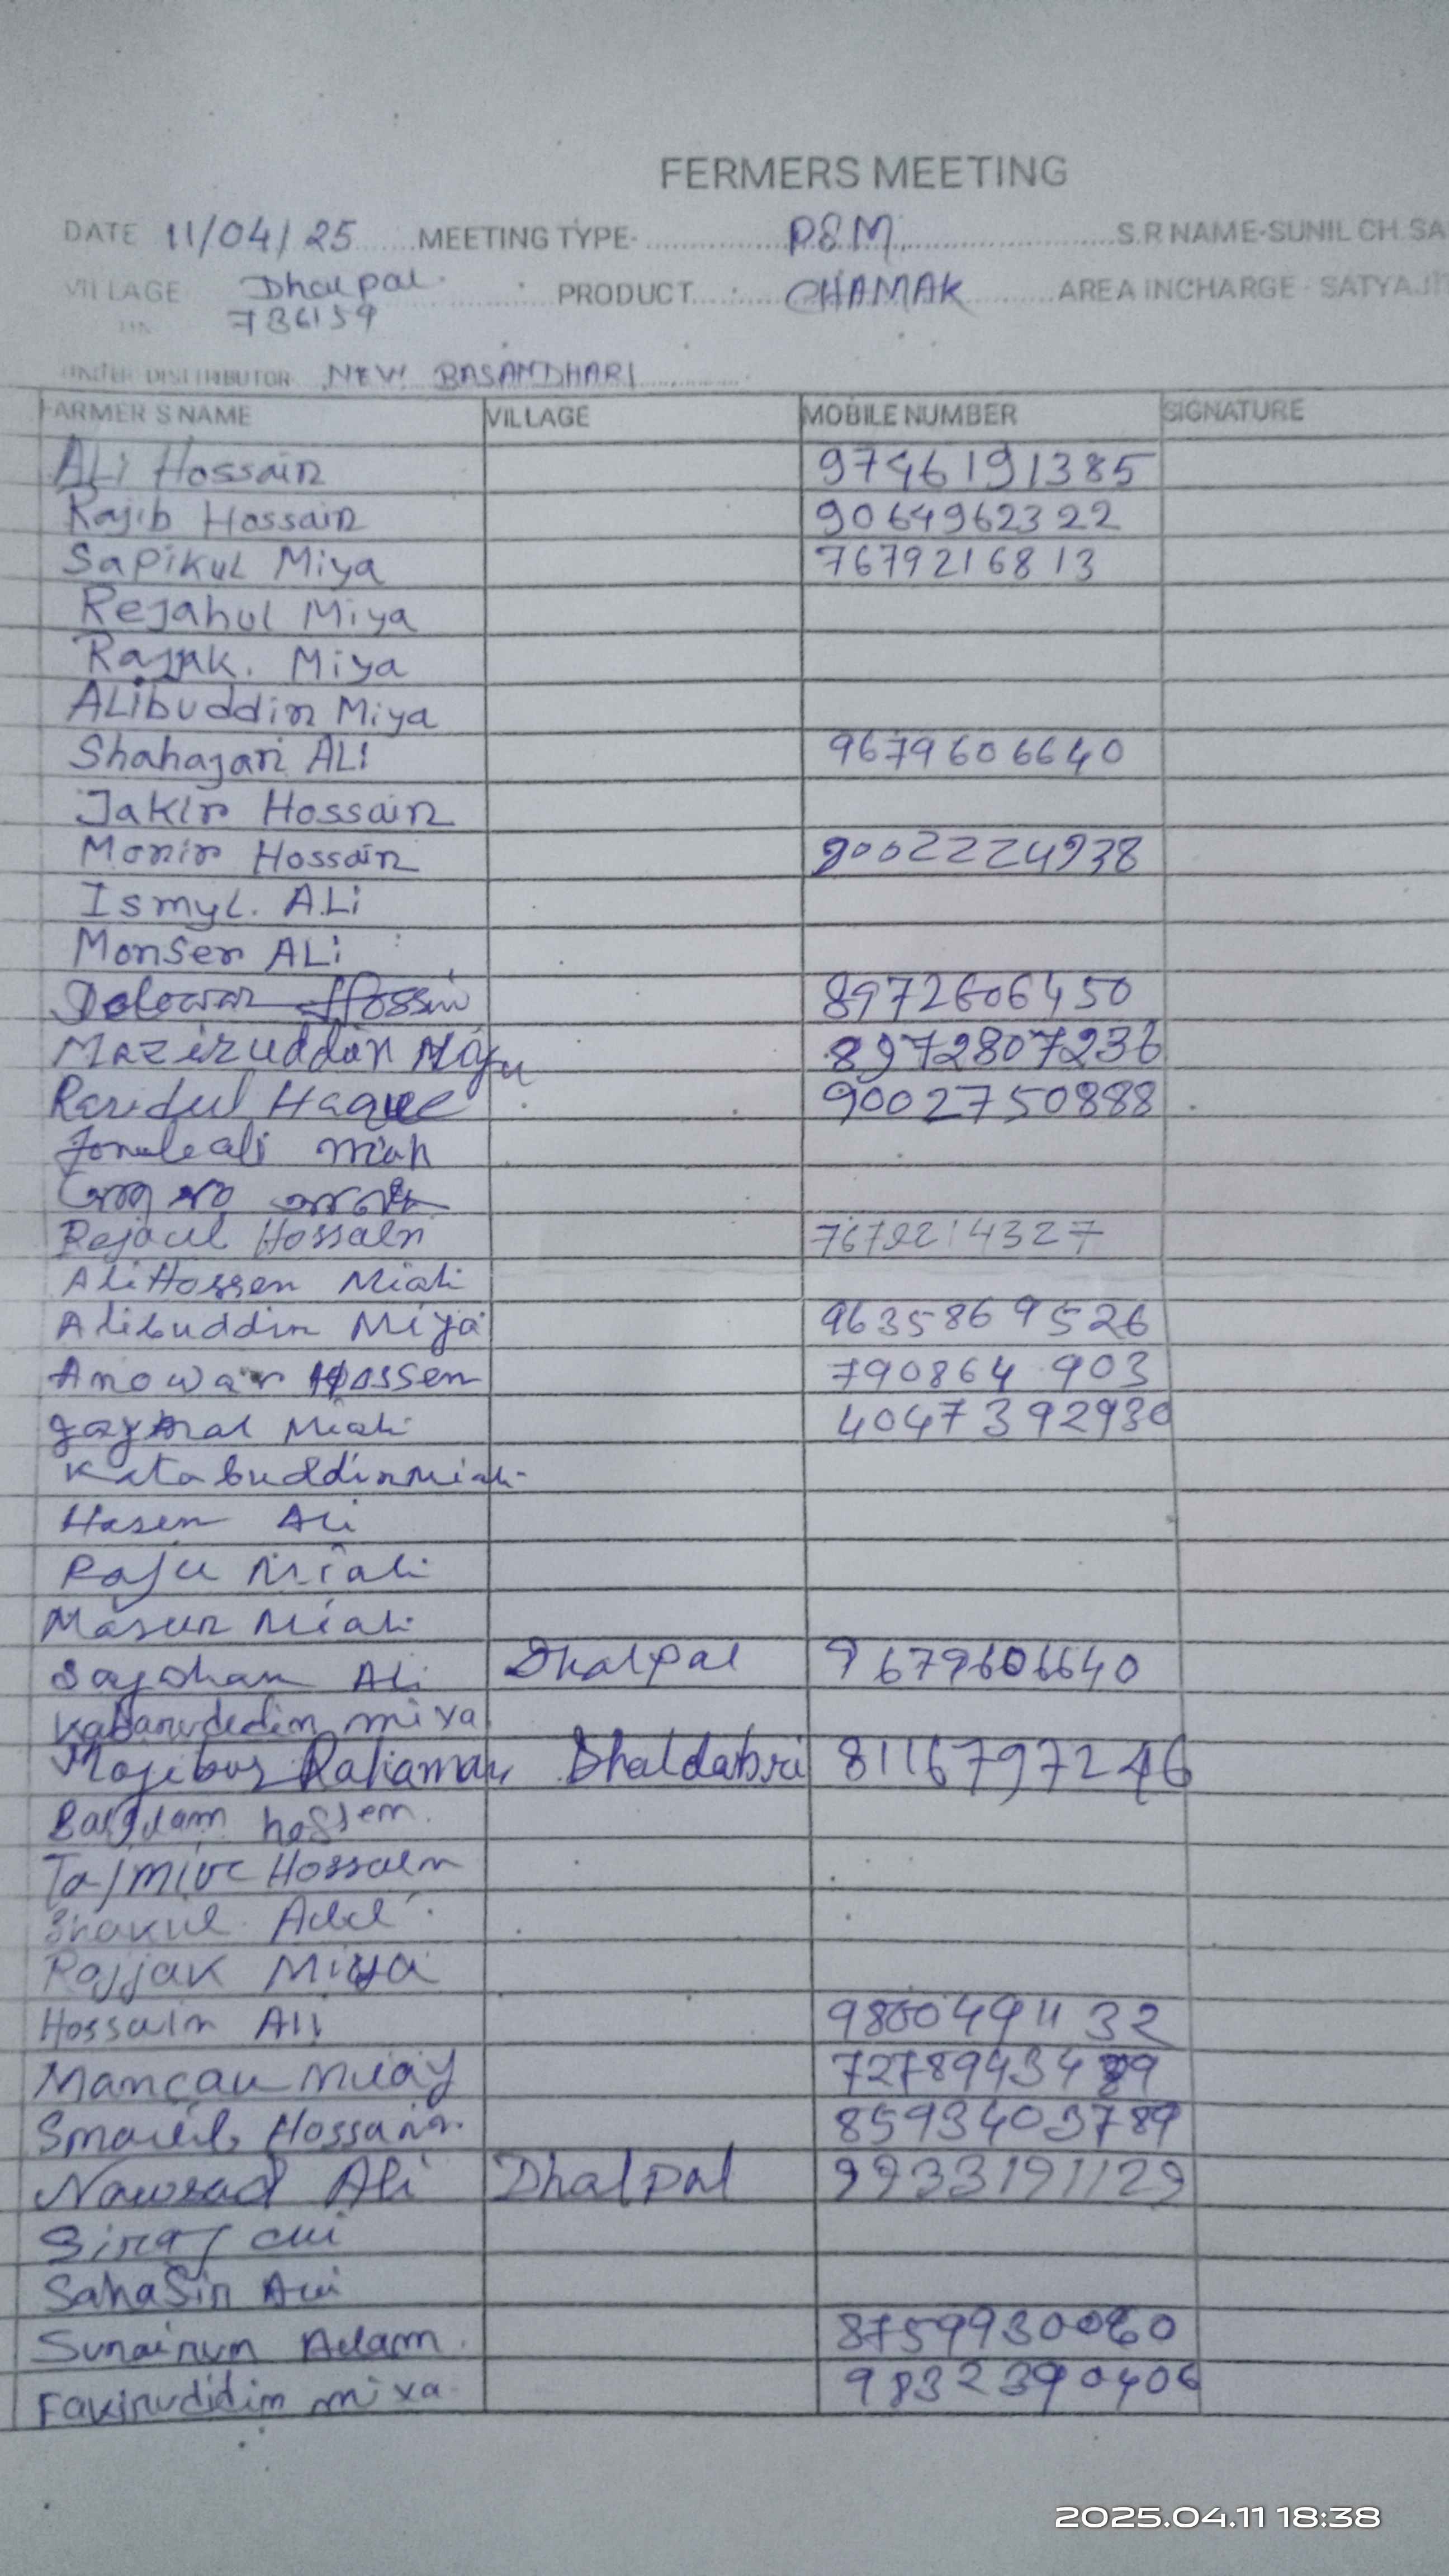 FERMERS MEETING
DATE 11/04/25 MEETING TYPE- PSM S.R NAME-SUNIL CH.SA
VILLAGE Dhalpal PRODUCT CHAMAK AREA INCHARGE - SATYAJI
736159
UNDER DISTRIBUTOR NEW BASANDHARI
FARMER S NAME VILLAGE MOBILE NUMBER SIGNATURE
ALi Hossain 9746191385
Rajib Hossain 9064962322
SaPiKUL Miya 7679216813
Rejahul Miya
Rajak. Miya
ALibuddin Miya
Shahajan ALI 9679606640
Jakir Hossain
Monir Hossain 9002224938
Ismyl. ALi
Monser ALi
Delowar Hossin 8972606450
Maziruddin 8972807236
Haque 9002750888
miah
Rejaul Hossain 7679214327
Ali Hossen Miah
Alibuddin Miya 9635869526
Anowar Hossen 790864 903
Miah 4047392930
Katabuddin Miah
Hasen Ali
Raju Miah
Masur Miah
Sajahan Ali Dhalpal 9679606640
miya
Mojibur Rahaman Dhaldabri 8116797246
hossem
Hossain
Rajjak Miya
Hossain Ali 9800491132
7278943489
Hossain 8593403789
Nawsad Ali Dhalpal 9933191129
Siraj
SahaSin
8759930060
Fakiruddim miya 9832390406
2025.04.11 18:38